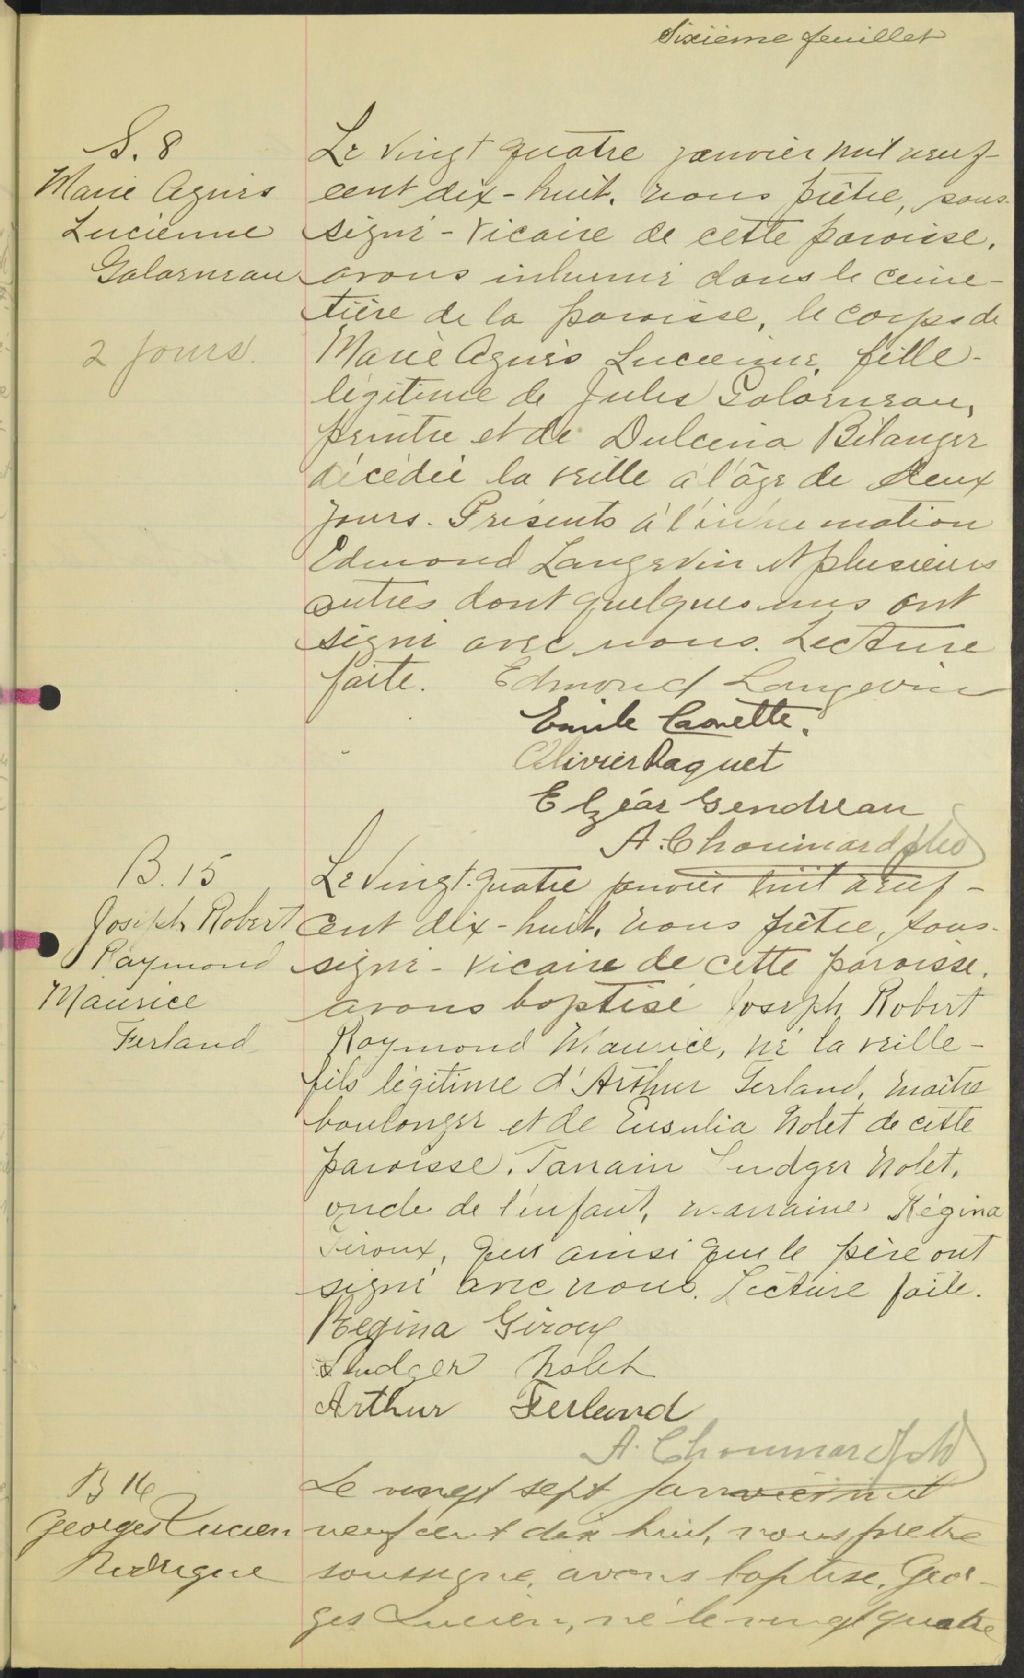 Sixième feuillet
S. 8
Marie Agnès
Lucienne
Galarneau
2 jours.
Le vingt quatre janvier mil neuf-
cent dix-huit, nous prêtre, sous-
signé-vicaire de cette paroisse,
avons inhumé dans le cime-
tière de la paroisse, le corps de
Marie Agnès Lucienne, fille-
légitime de Jules Galarneau,
peintre et de Dulcina Bélanger
décédée la veille à l'âge de deux
jours. Présents à l'inhumation
Edmond Langevin et plusieurs
autres dont quelques uns ont
signé avec nous. Lecture
faite. Edmond Langevin
Emile Caouette.
Olivier Paquet
Elzéar Gendreau
A. Chouinard ptre
B. 15
Joseph Robert
Raymond
Maurice
Ferland
Le vingt-quatre janvier mil neuf-
cent dix-huit, nous prêtre, sous-
signé-vicaire de cette paroisse,
avons baptisé Joseph Robert
Raymond Maurice, né la veille-
fils légitime d'Arthur Ferland, maître
boulanger et de Nolet de cette
paroisse. Parrain Ludger Nolet,
oncle de l'enfant, marraine Régina
Giroux, qui ainsi que le père ont
signé avec nous. Lecture faite.
Regina Giroux
Ludger Nolet
Arthur Ferland
A. Chouinard ptre
B 16
Georges Lucien
Rodrigue
Le vingt sept janvier mil
neuf cent dix huit, nous pretre
soussigné, avons baptisé, Geor-
ges Lucien, né le vingt quatre